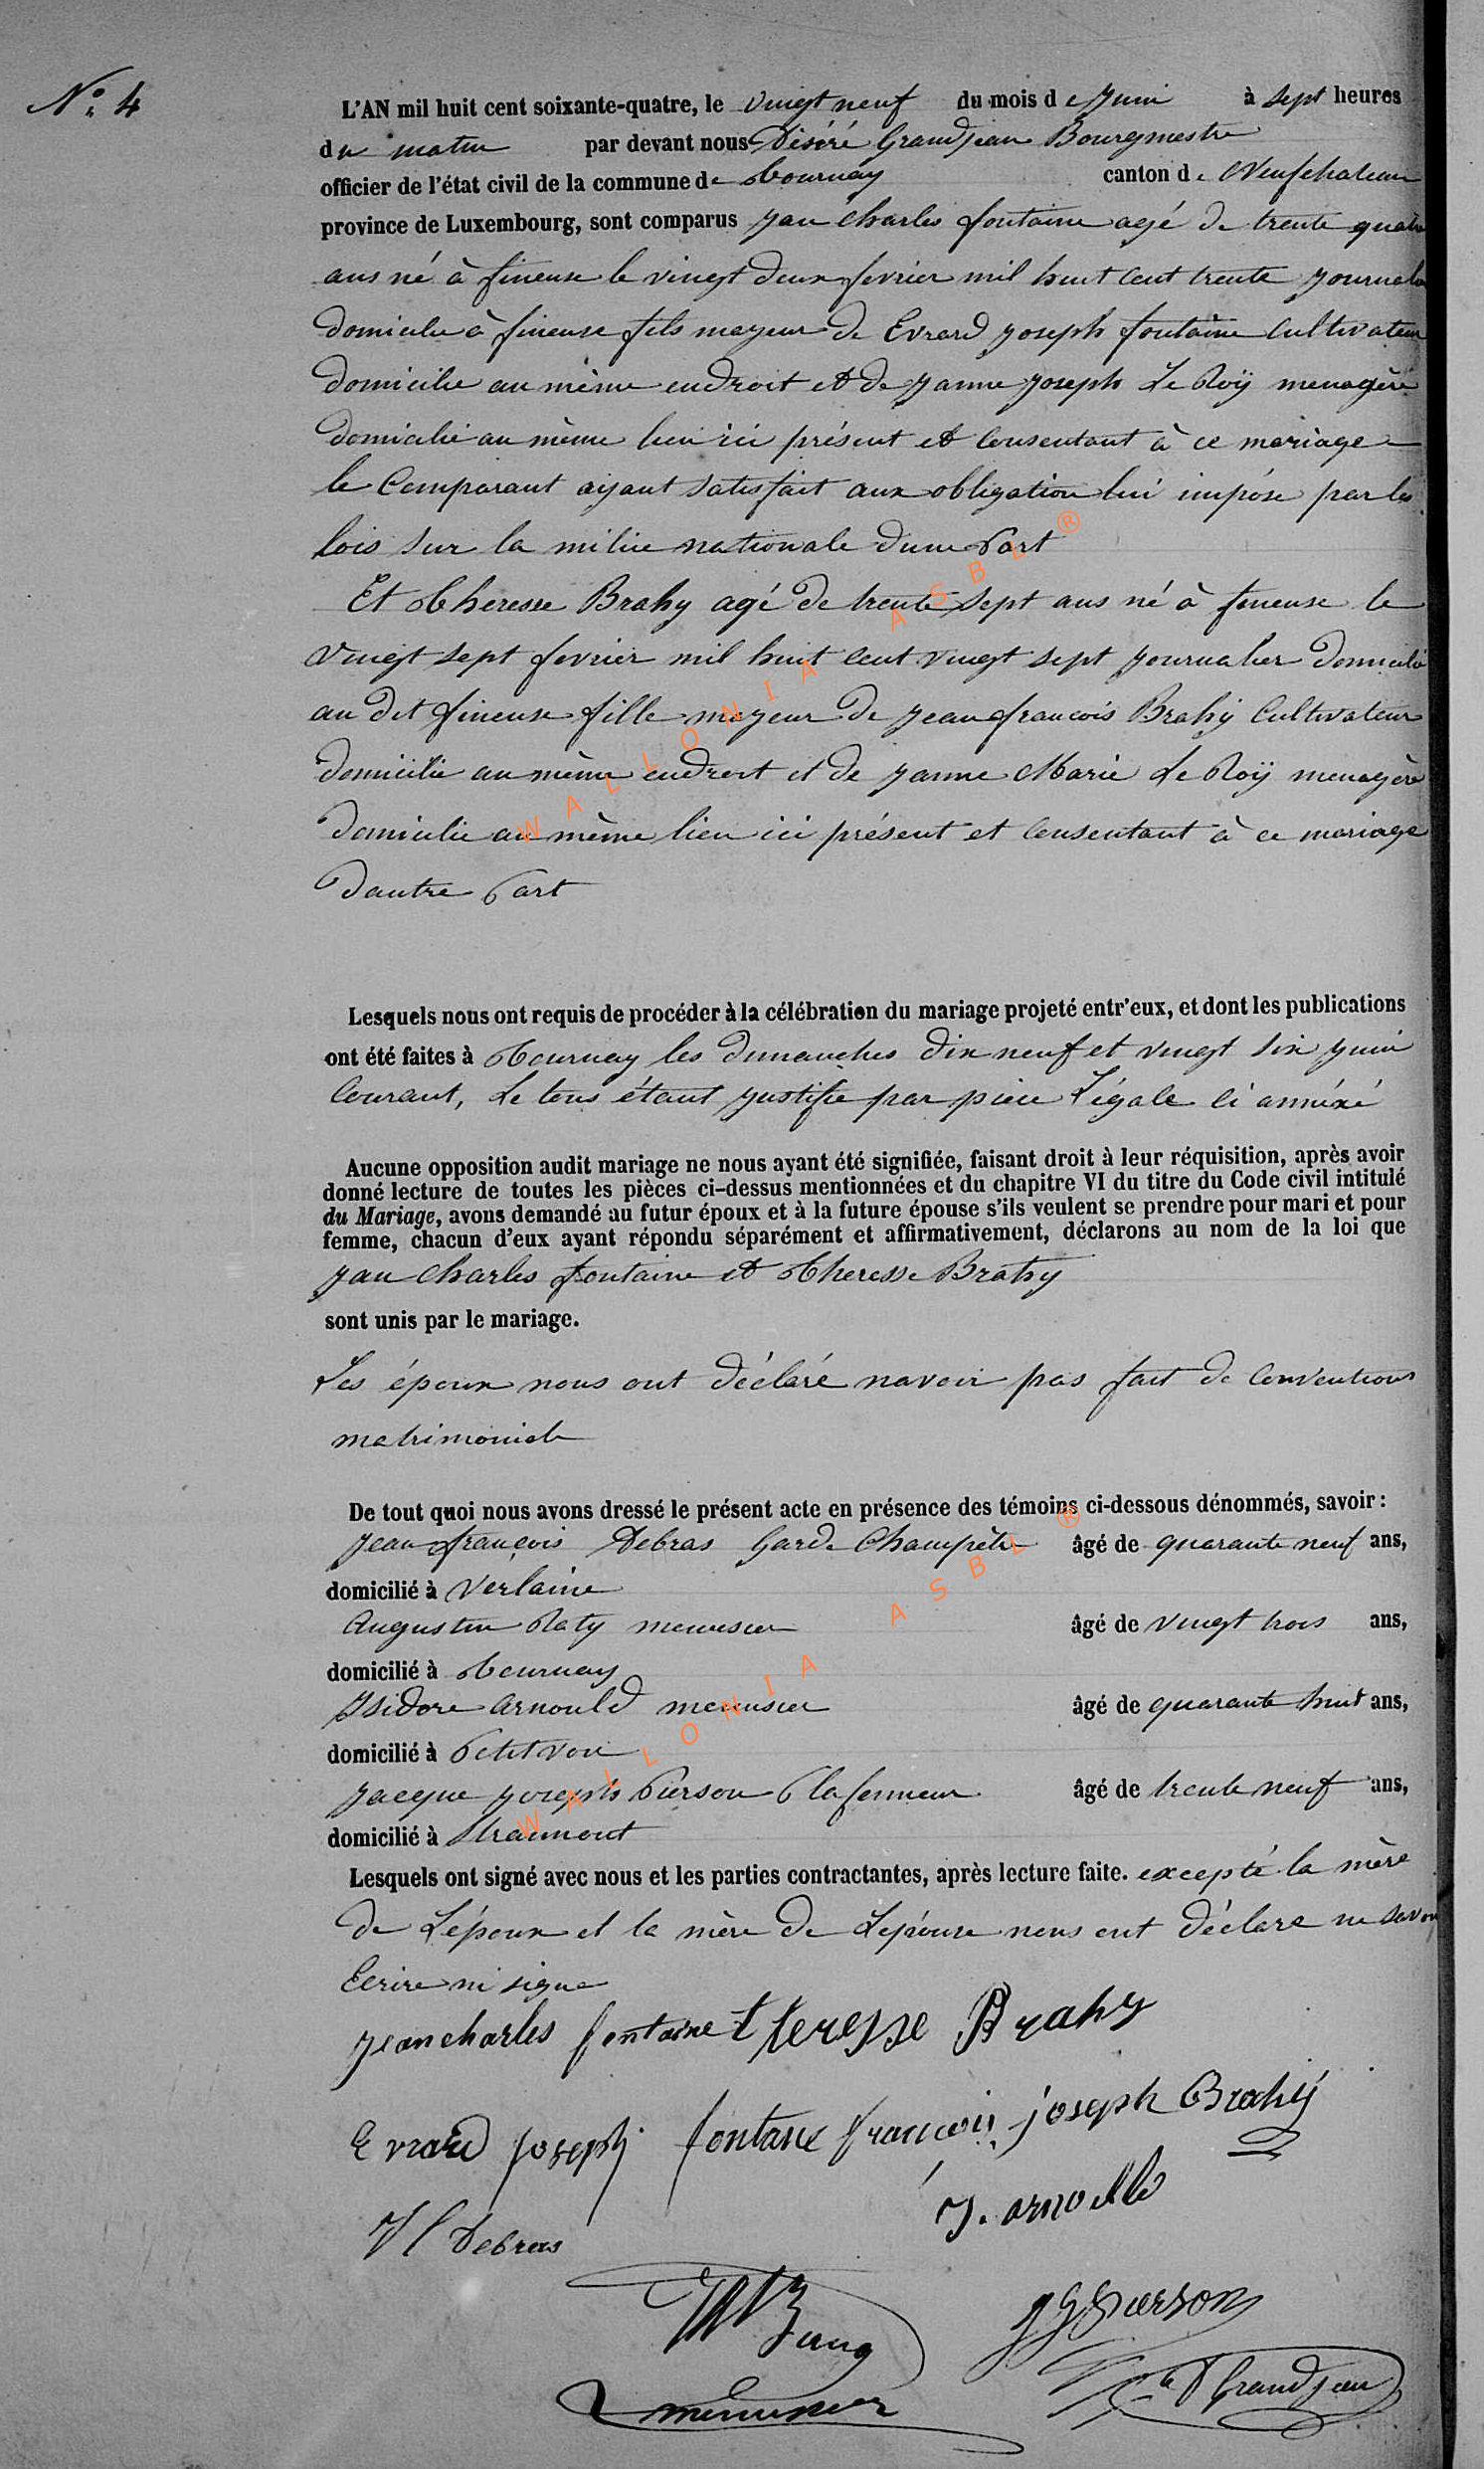 N° 4
L'AN mil huit cent soixante-quatre, le vingt neuf du mois de Juin à sept heures
du matin par devant nous Désiré Grandjean Bourgmestre
officier de l'état civil de la commune de Tournay canton de Neufchateau
province de Luxembourg, sont comparus Jean Charles fontaine agé de trente quatre
ans né à fineuse le vingt deux fevrier mil huit cent trente Journalier
domicilie à fineuse fils mayeur de Evrard Joseph fontaine Cultivateur
domicilie au même endroit et de Janne Joseph Le Roÿ menagère
domicilié au même lieu ici présent et Consentant à ce mariage
le Comparant ayant satisfait aux obligation lui impóse par les
lois sur la milice nationale dune Part
Et Theresse Brahy agé de trente sept ans né à fineuse le
vingt sept fevrier mil huit cent vingt sept Journalier Domicilié
au dit fineuse fille mayeur de Jean françois Brahÿ Cultivateur
domicilie au même endroit et de Janne Marie Le Roÿ menagère
domicilie au même lieu ici présent et Consentant à ce mariage
Dautre Part
Lesquels nous ont requis de procéder à la célébration du mariage projeté entr'eux, et dont les publications
ont été faites à Tournay les dimanches dix neuf et vingt six Juin
Courant, Le tous étant Justifie par piece Légale ci annéxé
Aucune opposition audit mariage ne nous ayant été signifiée, faisant droit à leur réquisition, après avoir
donné lecture de toutes les pièces ci-dessus mentionnées et du chapitre VI du titre du Code civil intitulé
du Mariage, avons demandé au futur époux et à la future épouse s'ils veulent se prendre pour mari et pour
femme, chacun d'eux ayant répondu séparément et affirmativement, déclarons au nom de la loi que
Jean Charles fontaine et Theresse Brahy
sont unis par le mariage.
Les époux nous ont déclaré navoir pas fait de Conventions
matrimoniale
De tout quoi nous avons dressé le présent acte en présence des témoins ci-dessous dénommés, savoir :
Jean françois Debras Garde Champêtre âgé de quarante neuf ans,
domicilié à Verlaine
Augustin Raty menuisier âgé de vingt trois ans,
domicilié à Tournay
Isidore Arnould menuisier âgé de quarante huit ans,
domicilié à Petitvoir
Jacque Joseph Pierson Plafonneur âgé de trente neuf ans,
domicilié à Straimont
Lesquels ont signé avec nous et les parties contractantes, après lecture faite. excepté la mère
de L'époux et la mère de Lépouse nous ont déclare ne savoir
Ecrire ni signe
Jean charles fontaine theresse Brahy
Evrard Joseph fontaine francois joseph Brahÿ
Debras
J. arnould
Pierson
menuisier
Grandjean
WALLONIA ASBL ®
WALLONIA ASBL ®